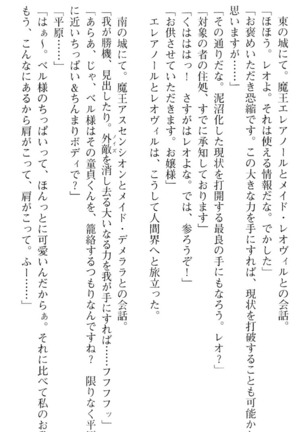 東の城にて。魔王エレアノールとメイド・レオヴィルとの会話。
「ほほう。レオよ。それは使える情報だな。でかした」
「お褒めいただき恐縮です。この大きな力を手にすれば、現状を打破することも可能か
思いますが……」
「その通りだな。泥沼化した現状を打開する最良の手にもなろう。レオ?」
「対象の者の住処、すでに承知しております」
「くはははっ! さすがはレオよな。では、参ろうぞ!」
「お供させていただきます。お嬢様」
エレアノールとレオヴィルは、こうして人間界へと旅立った。
南の城にて。魔王アスセンシオンとメイド・デメララとの会話。
「我が勝機、見出したり。外敵を消し去る大いなる力を我が手にすれば……フフフッ」
「あらぁ、じゃ、ベル様はその童貞くんを、籠絡するつもりなんですね? 限りなく平
に近いちっぱい&ちんまりボディで?」
「平原……」
「はぁ〜。ベル様のちっぱいって、ほんっとに可愛いんだからぁ。それに比べて私のお
もう、こんなにあるから肩がこって、肩がこって。ふー……」